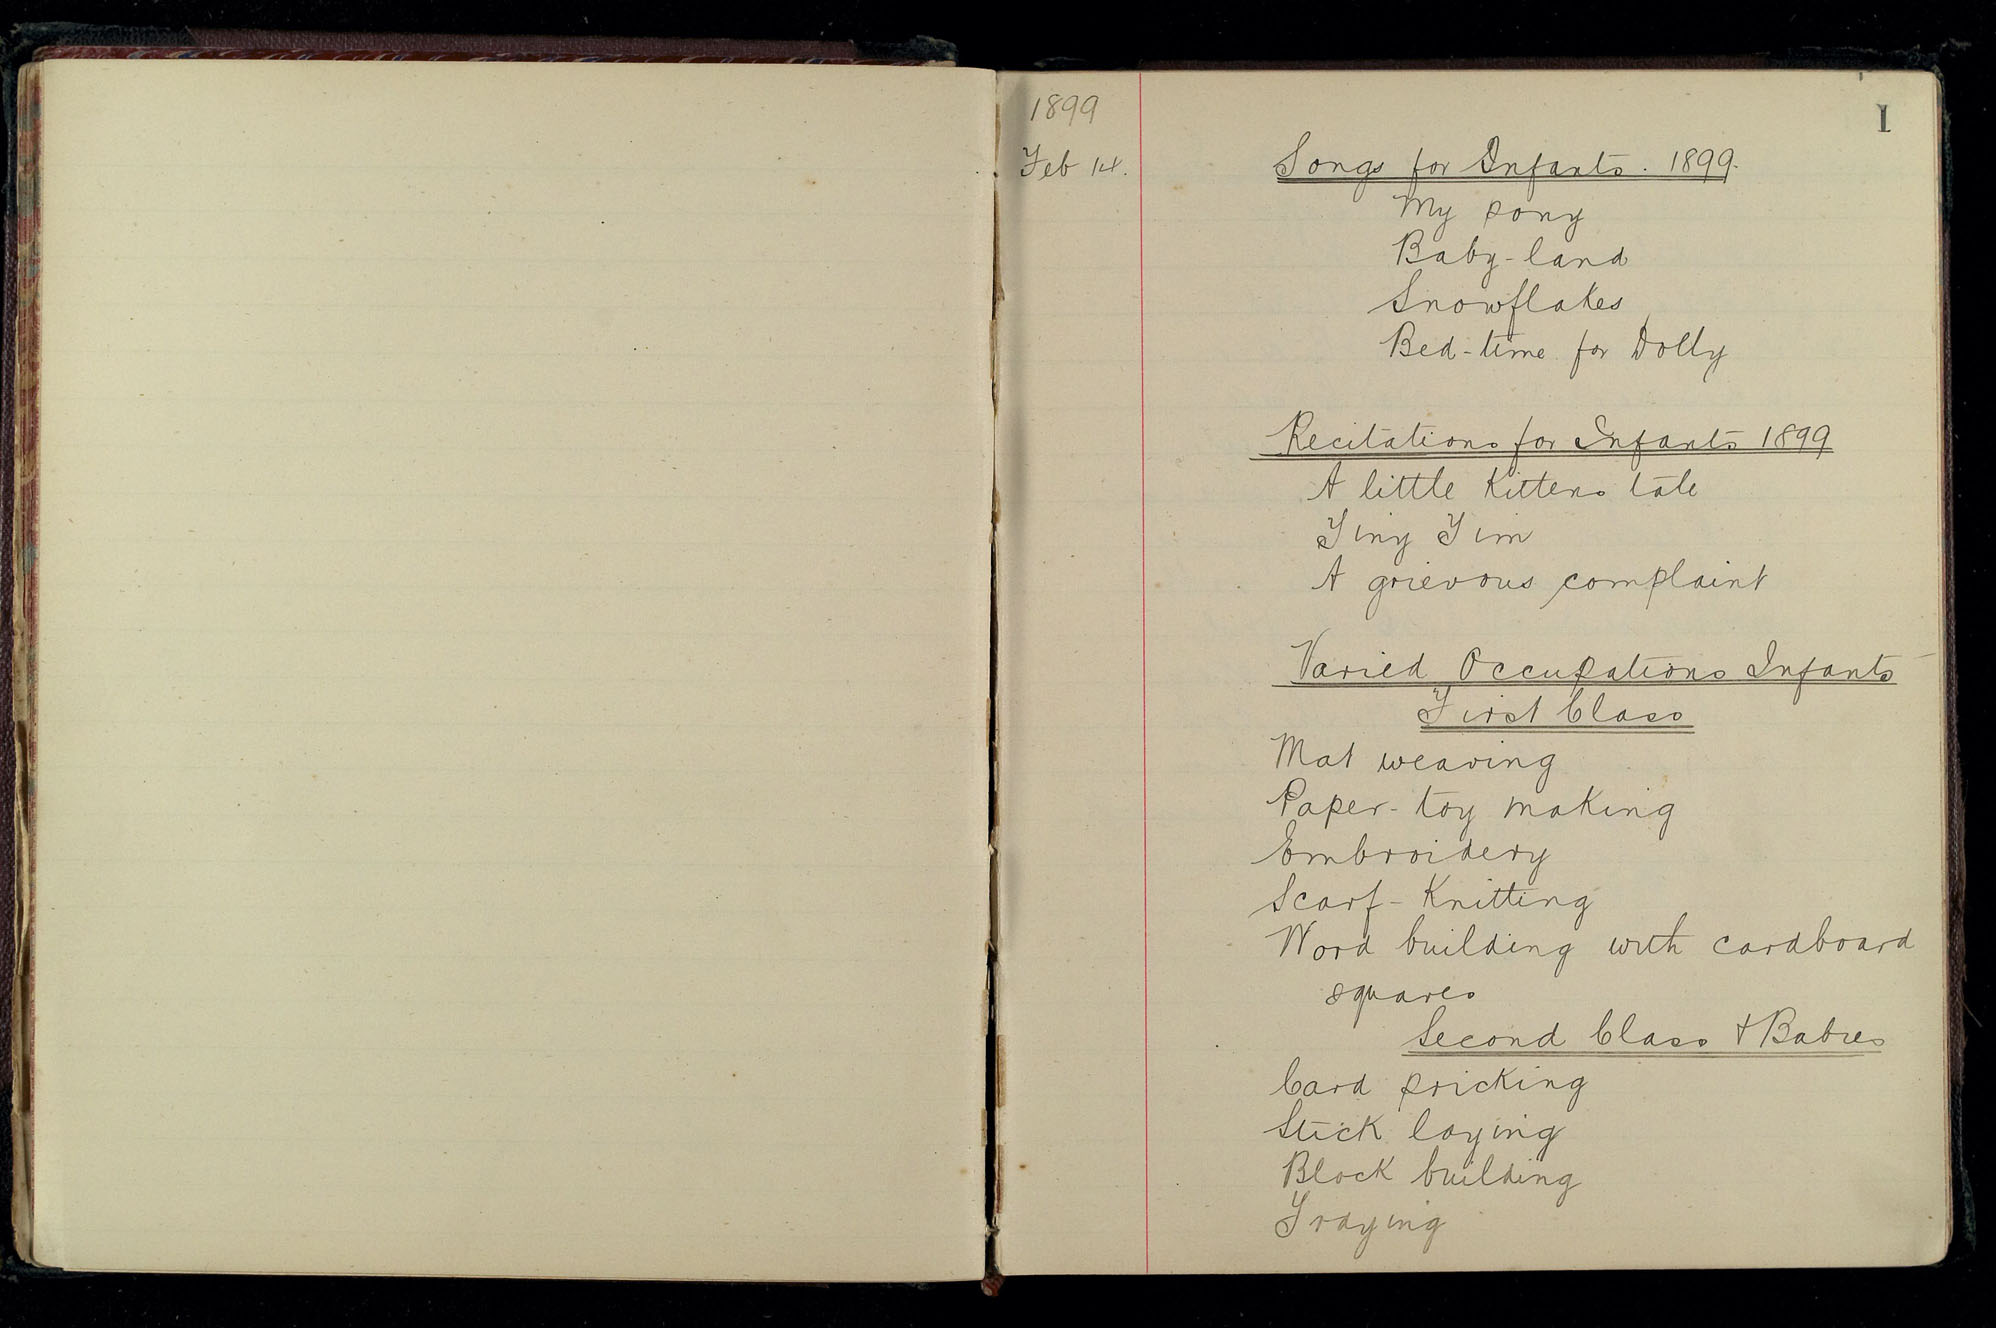 1
1899
Feb 14.
Songs for Infants. 1899.
My pony
Baby-land
Snowflakes
Bed-time for Dolly
Recitations for Infants 1899
A little Kittens tale
Tiny Tim
A grievous complaint
Varied Occupations Infants
First Class
Mat weaving
Paper-toy making
Embroidery
Scarf-Knitting
Word building with cardboard
squares
Second Class & Babies
Card pricking
Stick laying
Block building
Traying